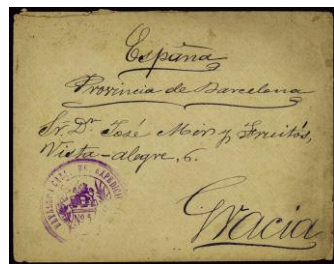 España
Provincia de Barcelona
Sr. Dr. José Mir y
Vista-alegre, 6.
Gracia